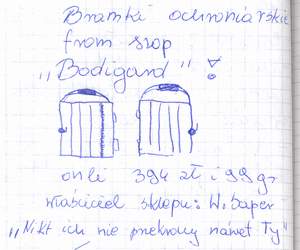 Bramki ochroniarskie
from szop
„Bodigard" !
onli 394 zł i 99 gr
właściciel sklepu: W. Saper
„Nikt ich nie przekroczy nawet Ty"